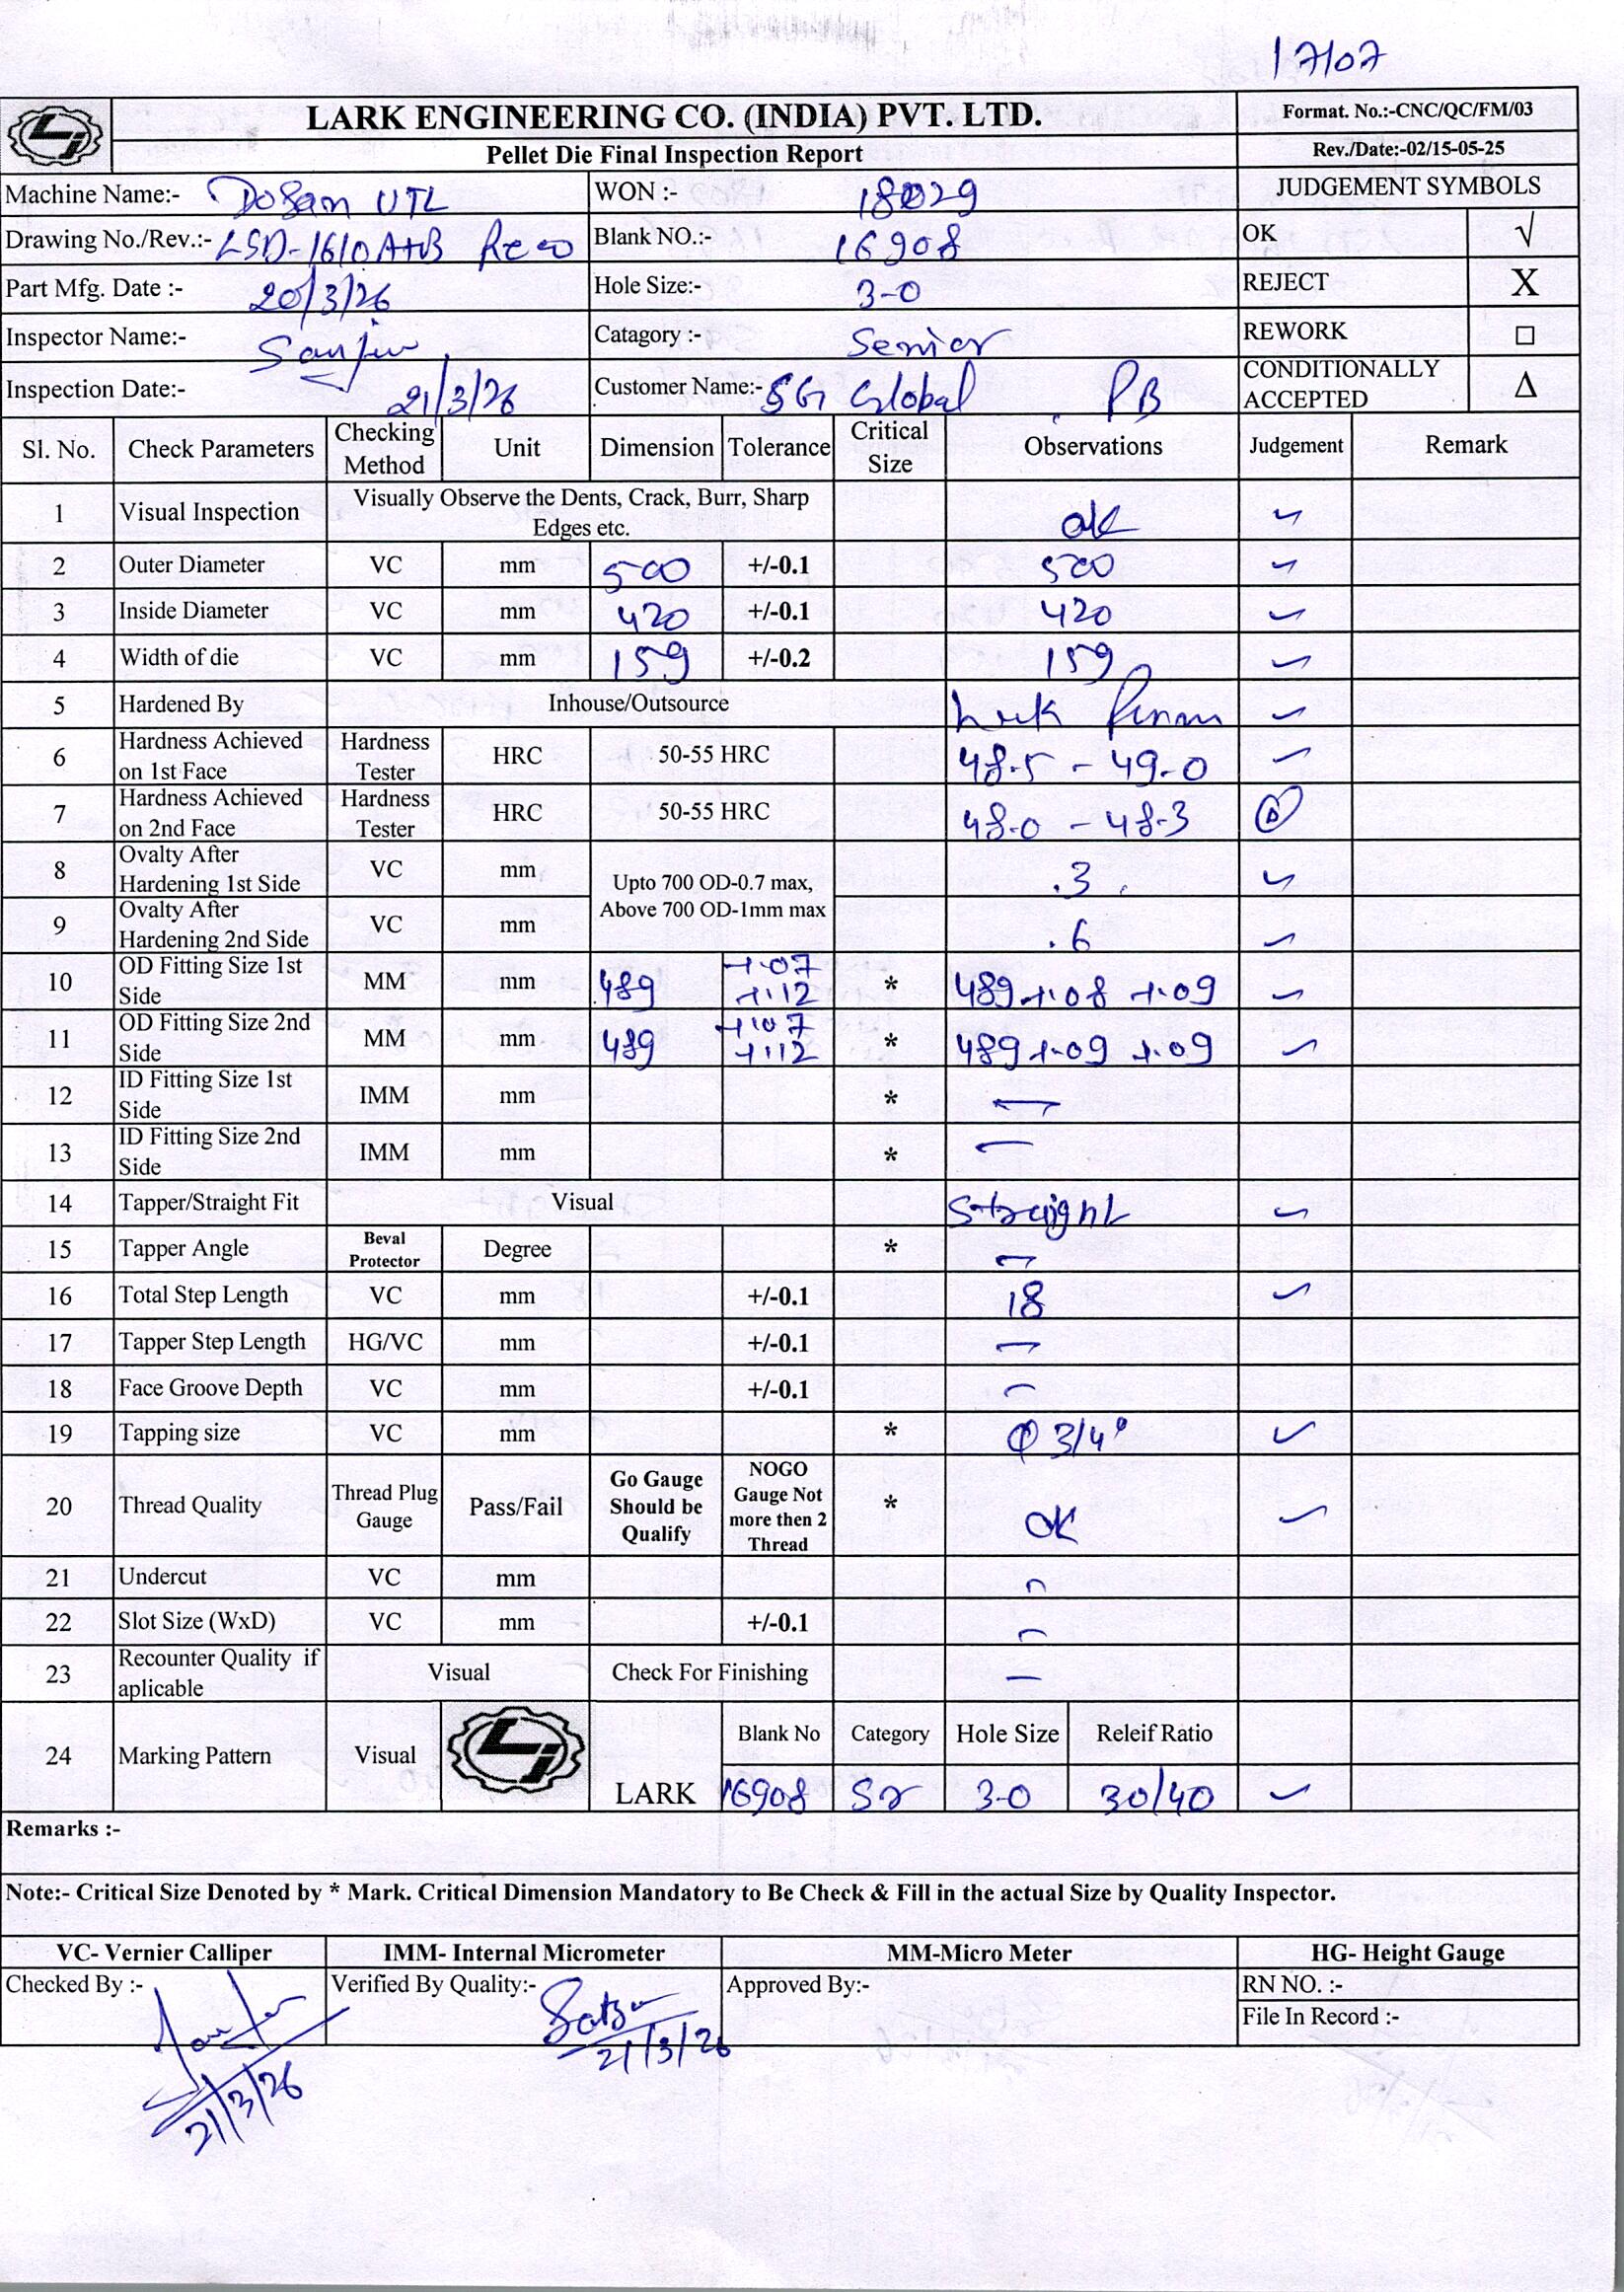 17/07
LARK ENGINEERING CO. (INDIA) PVT. LTD.
Format. No.:-CNC/QC/FM/03
Pellet Die Final Inspection Report
Rev./Date:-02/15-05-25
Machine Name:- Dosan UTL WON :- 18029 JUDGEMENT SYMBOLS
Drawing No./Rev.:- LSD-1610A+B Blank NO.:- 16908 OK √
Part Mfg. Date :- 20/3/26 Hole Size:- 3-0 REJECT X
Inspector Name:- Catagory :- Senior REWORK □
Inspection Date:- 21/3/26 Customer Name:- SG Global PB CONDITIONALLY ACCEPTED Δ
Sl. No. Check Parameters Checking Method Unit Dimension Tolerance Critical Size Observations Judgement Remark
1 Visual Inspection Visually Observe the Dents, Crack, Burr, Sharp Edges etc. ok ✓
2 Outer Diameter VC mm 500 +/-0.1 500 ✓
3 Inside Diameter VC mm 420 +/-0.1 420 ✓
4 Width of die VC mm 159 +/-0.2 159 ✓
5 Hardened By Inhouse/Outsource ✓
6 Hardness Achieved on 1st Face Hardness Tester HRC 50-55 HRC 48.5 - 49.0 ✓
7 Hardness Achieved on 2nd Face Hardness Tester HRC 50-55 HRC 48.0 - 48.3
8 Ovalty After Hardening 1st Side VC mm Upto 700 OD-0.7 max, Above 700 OD-1mm max .3 ✓
9 Ovalty After Hardening 2nd Side VC mm .6 ✓
10 OD Fitting Size 1st Side MM mm 489 +.07 +.12 * 489 +.08 +.09 ✓
11 OD Fitting Size 2nd Side MM mm 489 +.07 +.12 * 489 +.09 +.09 ✓
12 ID Fitting Size 1st Side IMM mm * —
13 ID Fitting Size 2nd Side IMM mm * —
14 Tapper/Straight Fit Visual Straight ✓
15 Tapper Angle Beval Protector Degree * —
16 Total Step Length VC mm +/-0.1 18 ✓
17 Tapper Step Length HG/VC mm +/-0.1 —
18 Face Groove Depth VC mm +/-0.1 —
19 Tapping size VC mm * Φ 3/4" ✓
20 Thread Quality Thread Plug Gauge Pass/Fail Go Gauge Should be Qualify NOGO Gauge Not more then 2 Thread * OK ✓
21 Undercut VC mm —
22 Slot Size (WxD) VC mm +/-0.1 —
23 Recounter Quality if aplicable Visual Check For Finishing —
24 Marking Pattern Visual LARK Blank No Category Hole Size Releif Ratio
16908 Sr 3-0 30/40 ✓
Remarks :-
Note:- Critical Size Denoted by * Mark. Critical Dimension Mandatory to Be Check & Fill in the actual Size by Quality Inspector.
VC- Vernier Calliper IMM- Internal Micrometer MM-Micro Meter HG- Height Gauge
Checked By :- Verified By Quality:- Approved By:- RN NO. :-
File In Record :-
21/3/26
21/3/26